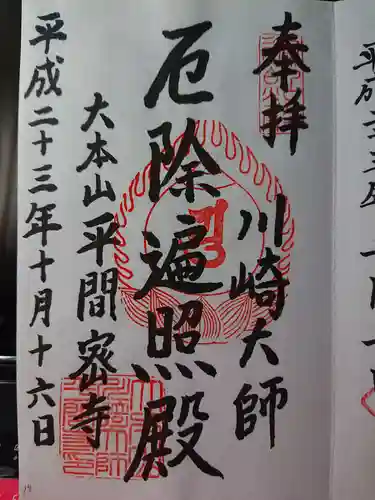 奉拝
川崎大師
厄除遍照殿
大本山平間密寺
平成二十三年十月十六日